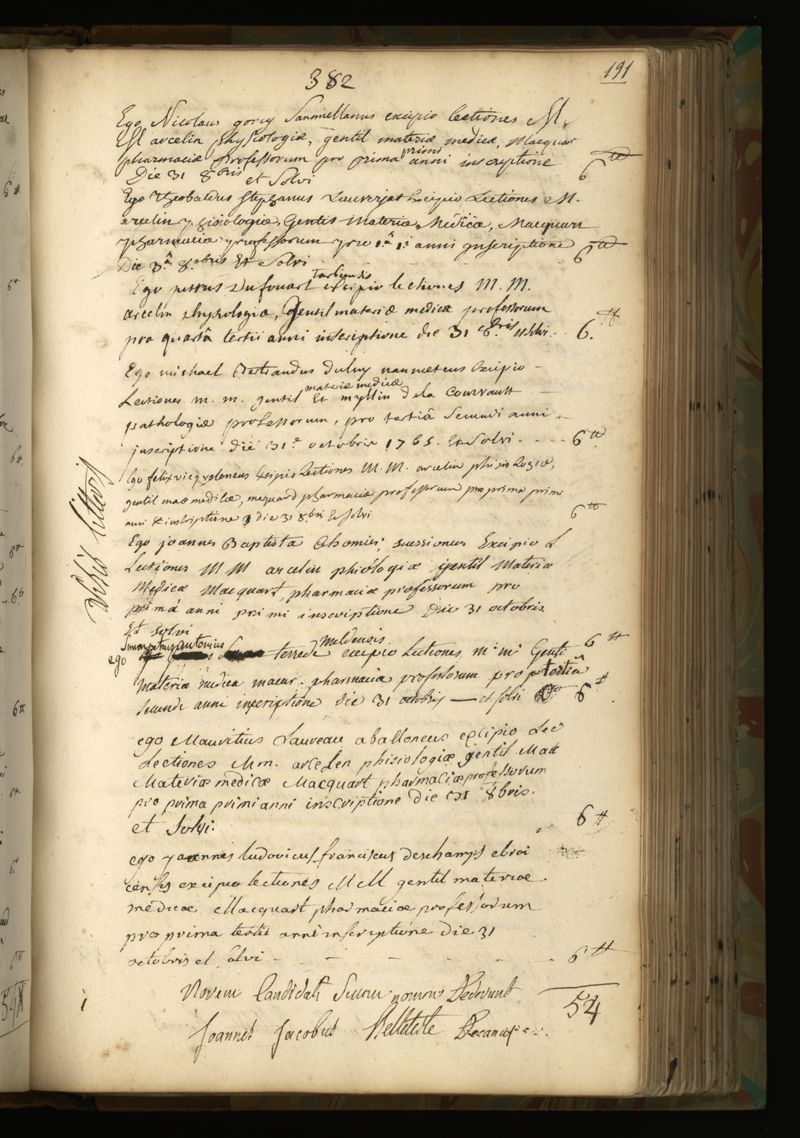 382
191
Ego Nicolaus gorcy Sanmiellanus excipio lectiones M.
M arcelin physiologiæ, gentil materiæ medicæ, Macquar
pharmaciæ professorum pro prima primi anni inscriptione
Die 31 8bris et Solvi 6tt
Ego Theobaldus Stephanus Lauverjat Excipio Lectiones M.
arcelin physiologiæ, Gentil Materiæ Medicæ, Macquart
pharmaciæ professorum pro 1â 1i anni inscriptione
Die 8obris Et Solvi 6tt
Ego petrus Dufouart excipio lectiones M. M.
arcelin physiologiæ, Gentil materiæ medicæ professorum
pro quartâ tertii anni inscriptione die 31 8bris et solvi 6.tt
Ego michael Bertrandus Dulny nanneteus Excipio
Lectiones m. m. gentil materiæ medicæ Et myllin dela Courvault
pathologiæ professorum, pro tertiâ Secundi anni
inscriptione die 31a octobris 1765. Et Solvi 6tt
Ego felix vicq valoneus Excipio Lectiones M. M. arcelin phisiologiæ,
gentil mat medicæ, maquard pharmaciæ professorum pro prima primi
anni inscriptione die 31 8.bri Et Solvi 6tt
Ego joannes Baptista Suessioneus Excipio L
Lectiones M M arcelin phiologiæ gentil Materiæ
Medicæ Macquart pharmaciæ professorum pro
primâ anni primi inscriptione Die 31 octobris
Et solvi 6tt
ego antonius terrede meldensis excipio Lectiones m. m. Genti
Materiæ medicæ macar. pharmaciæ professorum pro tertiâ
Secundi anni inscriptione die 31 octobris et solvi 6tt
ego Mauritius Laureau aballoneus excipio Lec
Lectiones M m. arcelen phisiologiæ gentil Mat
Materiæ medicæ Macquart pharmaciæ professorum
pro prima primi anni inscriptione die 31 8bris.
et Solvi. 6tt
ego joannes ludovicus franciscus deschamps ebroi
censis excipio lectiones M M gentil materiæ
medicæ Macquart pharmaciæ professorum
pro prima tertii anni inscriptione die 31
octobris et solvi 6tt
Novem Candidati Suum nomen Dederunt 54
Joannes Jacobus Belleteste Decanus